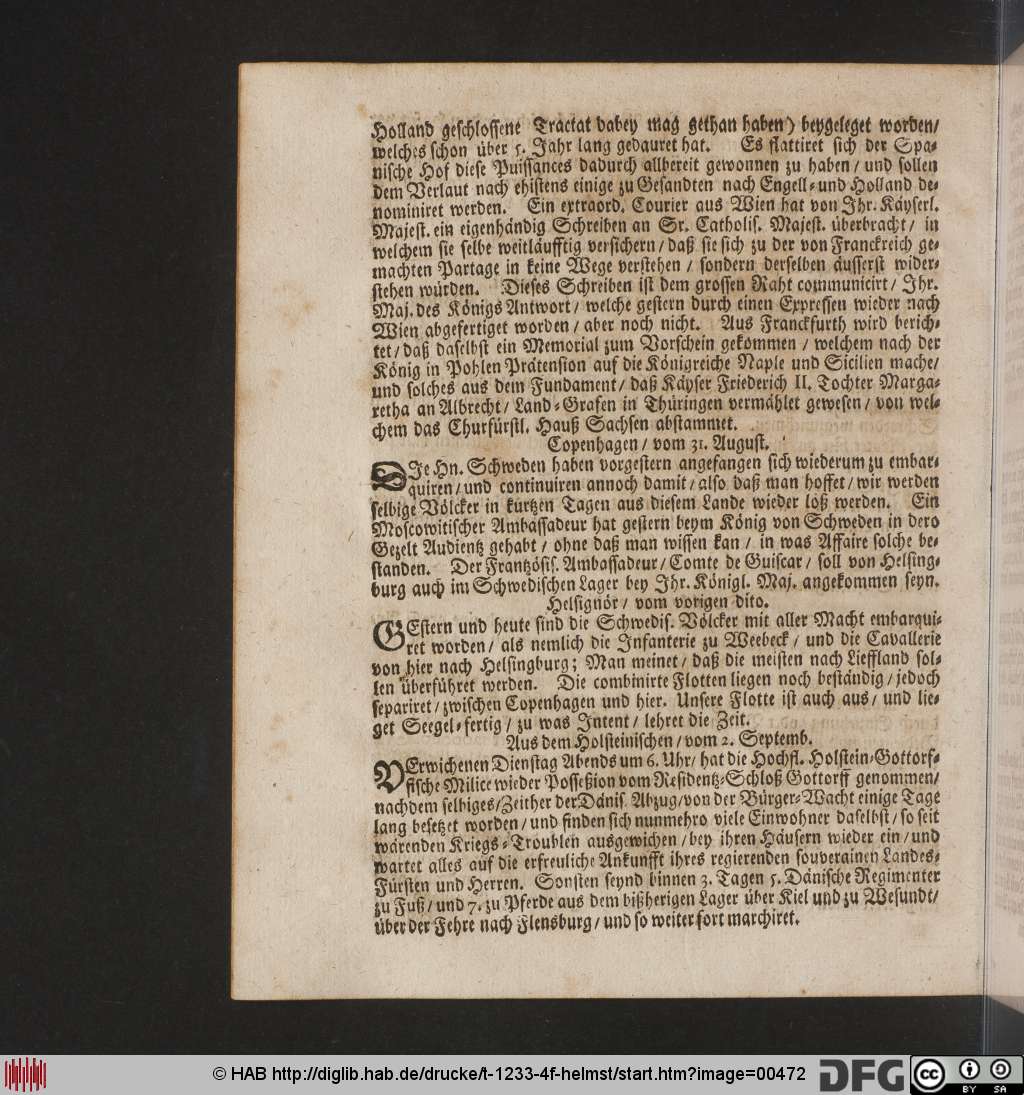 Holland geschlossene Tractat dabey mag gethan haben) beygeleget worden/
welches schon über 5. Jahr lang gedauret hat. Es flattiret sich der Spa-
nische Hof diese Puissances dadurch allbereit gewonnen zu haben/ und sollen
dem Verlaut nach ehistens einige zu Gesandten nach Engell- und Holland de-
nominiret werden. Ein extraord. Courier aus Wien hat von Ihr. Käyserl.
Majest. ein eigenhändig Schreiben an Sr. Catholis. Majest. überbracht/ in
welchem sie selbe weitläufftig versichern/ daß sie sich zu der von Franckreich ge-
machten Partage in keine Wege verstehen/ sondern derselben äusserst wider-
stehen würden. Dieses Schreiben ist dem grossen Raht communicirt/ Ihr.
Maj. des Königs Antwort/ welche gestern durch einen Expressen wieder nach
Wien abgefertiget worden/ aber noch nicht. Aus Franckfurth wird berich-
tet/ daß daselbst ein Memorial zum Vorschein gekommen/ welchem nach der
König in Pohlen Prätension auf die Königreiche Naple und Sicilien mache/
und solches aus dem Fundament/ daß Käyser Friederich II. Tochter Marga-
retha an Albrecht/ Land-Grafen in Thüringen vermählet gewesen/ von wel-
chem das Churfürstl. Hauß Sachsen abstammet.
Copenhagen/ vom 31. August.
DIe Hn. Schweden haben vorgestern angefangen sich wiederum zu embar-
quiren/ und continuiren annoch damit/ also daß man hoffet/ wir werden
selbige Völcker in kurtzen Tagen aus diesem Lande wieder loß werden. Ein
Moscowitischer Ambassadeur hat gestern beym König von Schweden in dero
Gezelt Audientz gehabt/ ohne daß man wissen kan/ in was Affaire solche be-
standen. Der Frantzösis. Ambassadeur/ Comte de Guiscar/ soll von Helsing-
burg auch im Schwedischen Lager bey Ihr. Königl. Maj. angekommen seyn.
Helsignör/ vom vorigen dito.
GEstern und heute sind die Schwedis. Völcker mit aller Macht embarqui-
ret worden/ als nemlich die Infanterie zu Weebeck/ und die Cavallerie
von hier nach Helsingburg; Man meinet/ daß die meisten nach Lieffland sol-
len überführet werden. Die combinirte Flotten liegen noch beständig/ jedoch
separiret/ zwischen Copenhagen und hier. Unsere Flotte ist auch aus/ und lie-
get Seegel-fertig/ zu was Intent/ lehret die Zeit.
Aus dem Holsteinischen/ vom 2. Septemb.
VErwichenen Dienstag Abends um 6. Uhr/ hat die Hochfl. Holstein-Gottorf-
fische Milice wieder Posseßion vom Residentz-Schloß Gottorff genommen/
nachdem selbiges/ Zeither der Dänis. Abzug/ von der Bürger-Wacht einige Tage
lang besetzet worden/ und finden sich nunmehro viele Einwohner daselbst/ so seit
wärenden Kriegs-Troublen ausgewichen/ bey ihren Häusern wieder ein/ und
wartet alles auf die erfreuliche Ankunfft ihres regierenden souverainen Landes-
Fürsten und Herren. Sonsten seynd binnen 3. Tagen 5. Dänische Regimenter
zu Fuß/ und 7. zu Pferde aus dem bißherigen Lager über Kiel und zu Wesundt/
über der Fehre nach Flensburg/ und so weiter fort marchiret.
© HAB http://diglib.hab.de/drucke/t-1233-4f-helmst/start.htm?image=00472
DFG
cc BY SA